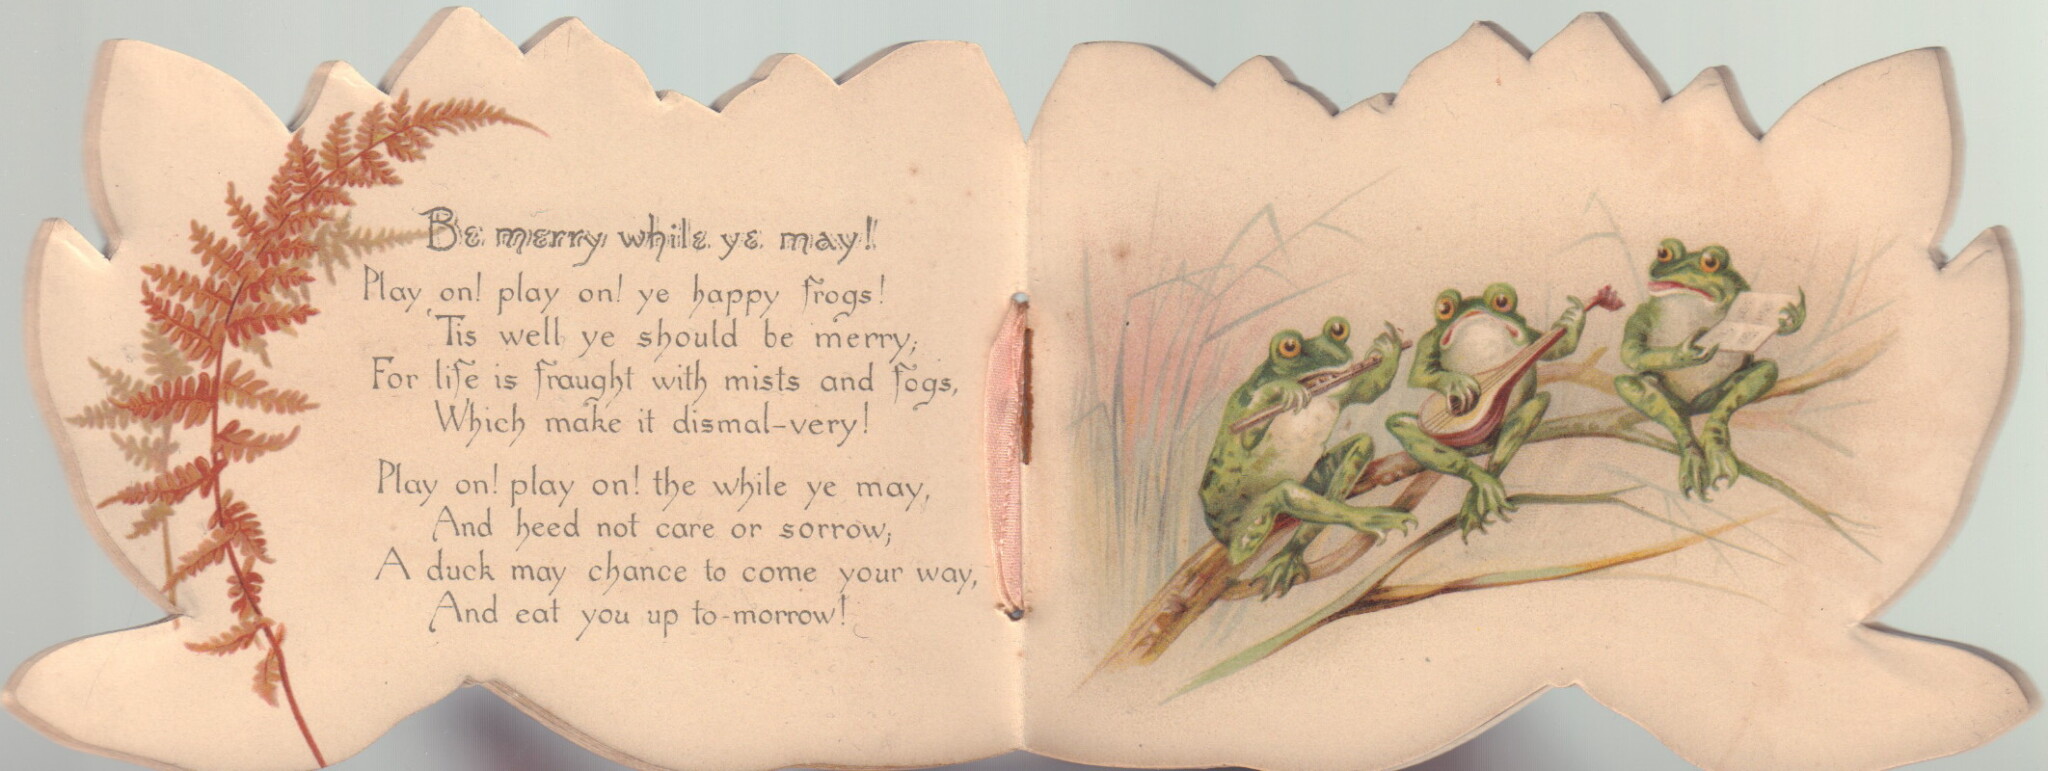 Be merry while ye may!
Play on! play on! ye happy frogs!
'Tis well ye should be merry;
For life is fraught with mists and fogs,
Which make it dismal-very!
Play on! play on! the while ye may,
And heed not care or sorrow;
A duck may chance to come your way,
And eat you up to-morrow!